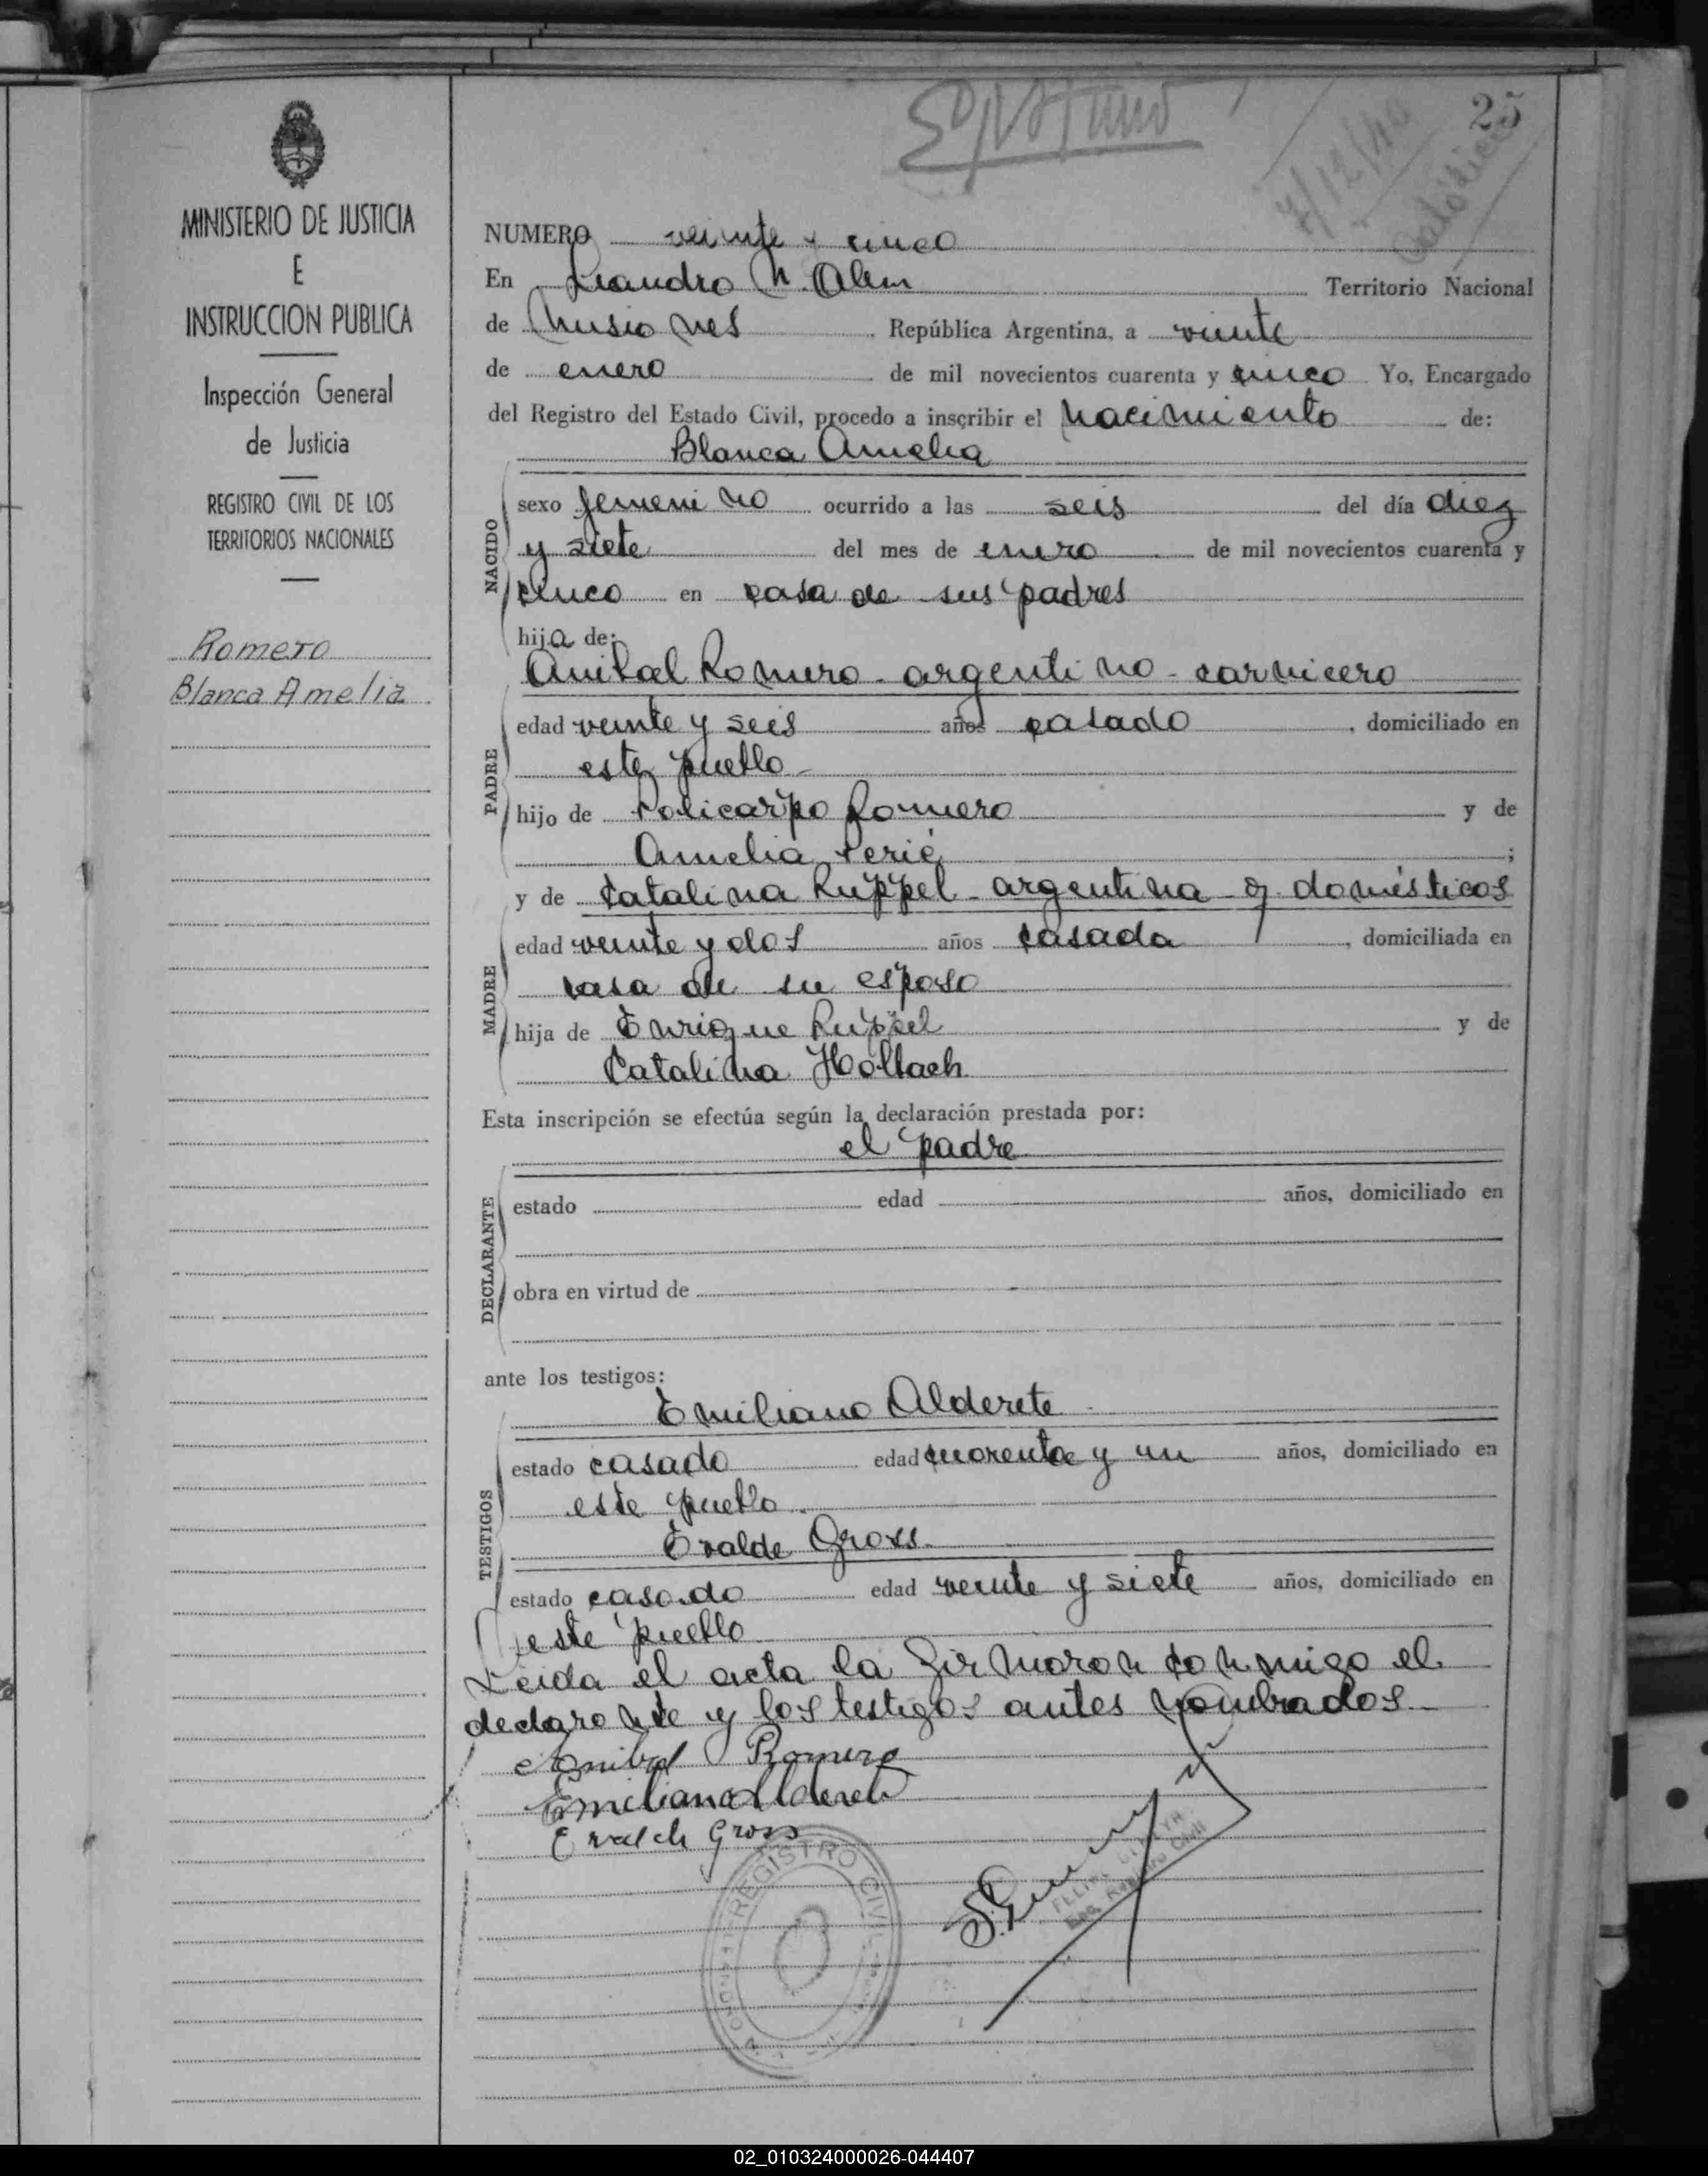 25
7/12/40
MINISTERIO DE JUSTICIA
E
INSTRUCCION PUBLICA
Inspección General
de Justicia
REGISTRO CIVIL DE LOS
TERRITORIOS NACIONALES
Romero
Blanca Amelia
NUMERO veinte y cinco
En Leandro N. Alem Territorio Nacional
de Misiones República Argentina, a veinte
de enero de mil novecientos cuarenta y cinco Yo, Encargado
del Registro del Estado Civil, procedo a inscribir el nacimiento de:
Blanca Amelia
NACIDO
sexo femenino ocurrido a las seis del día diez
y siete del mes de enero de mil novecientos cuarenta y
cinco en casa de sus padres
hija de:
Anibal Romero - argentino - carnicero
PADRE
edad veinte y seis años casado, domiciliado en
este pueblo
hijo de Policarpo Romero y de
Amelia Perié;
MADRE
y de Catalina Ruppel - argentina - q. domésticos
edad veinte y dos años casada, domiciliada en
casa de su esposo
hija de Enrique Ruppel y de
Catalina Hollach
Esta inscripción se efectúa según la declaración prestada por:
el padre
DECLARANTE
estado edad años, domiciliado en
obra en virtud de
ante los testigos:
Emiliano Alderete
TESTIGOS
estado casado edad cuarenta y un años, domiciliado en
este pueblo
Evalde Gross
estado casado edad veinte y siete años, domiciliado en
este pueblo
Leida el acta la firmaron conmigo el
declarante y los testigos antes nombrados.-
Anibal Romero
Emiliano Alderete
Evalde Gross
REGISTRO CIVIL
02_010324000026-044407